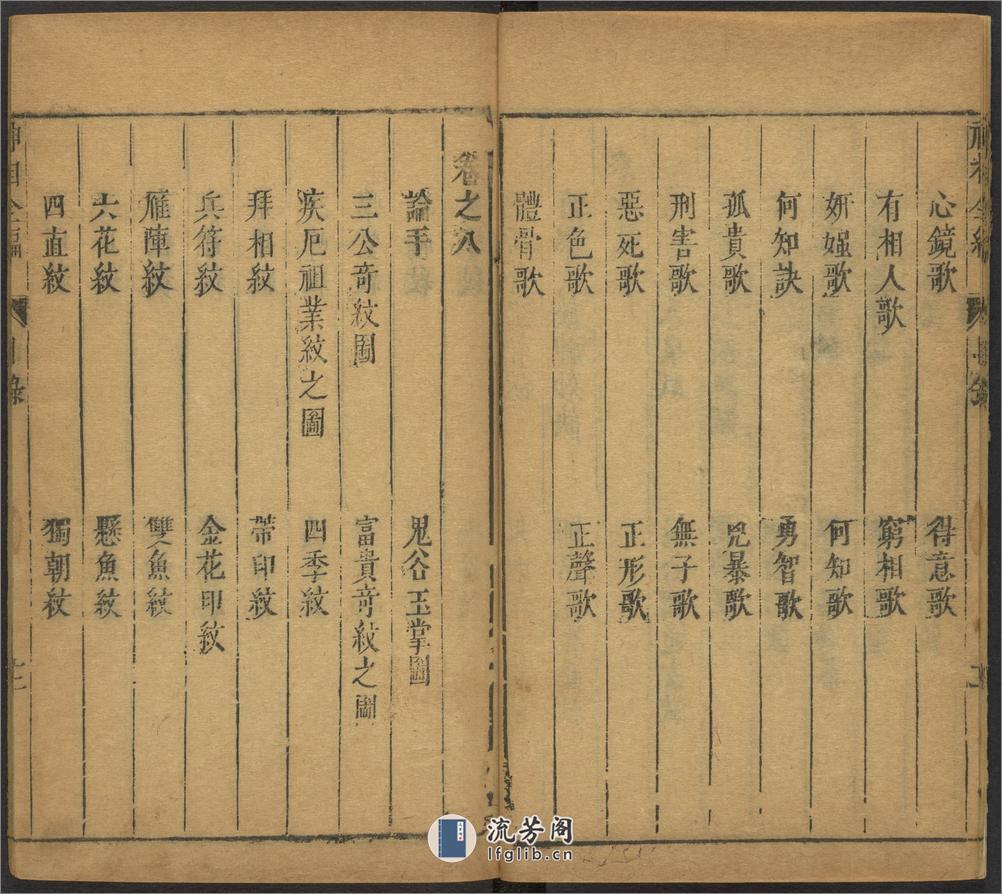 心鏡歌　得意歌
有相人歌　窮相歌
妍媸歌　何知歌
何知訣　勇智歌
孤貴歌　兇暴歌
刑害歌　無子歌
惡死歌　正形歌
正色歌　正聲歌
體骨歌
卷之八
論手　鬼谷玉掌圖
三公奇紋圖　富貴竒紋之圖
疾厄祖業紋之圖　四季紋
拜相紋　帶印紋
兵符紋　金花印紋
雁陣紋　雙魚紋
六花紋　懸魚紋
四直紋　獨朝紋
流芳阁
lfglib.cn